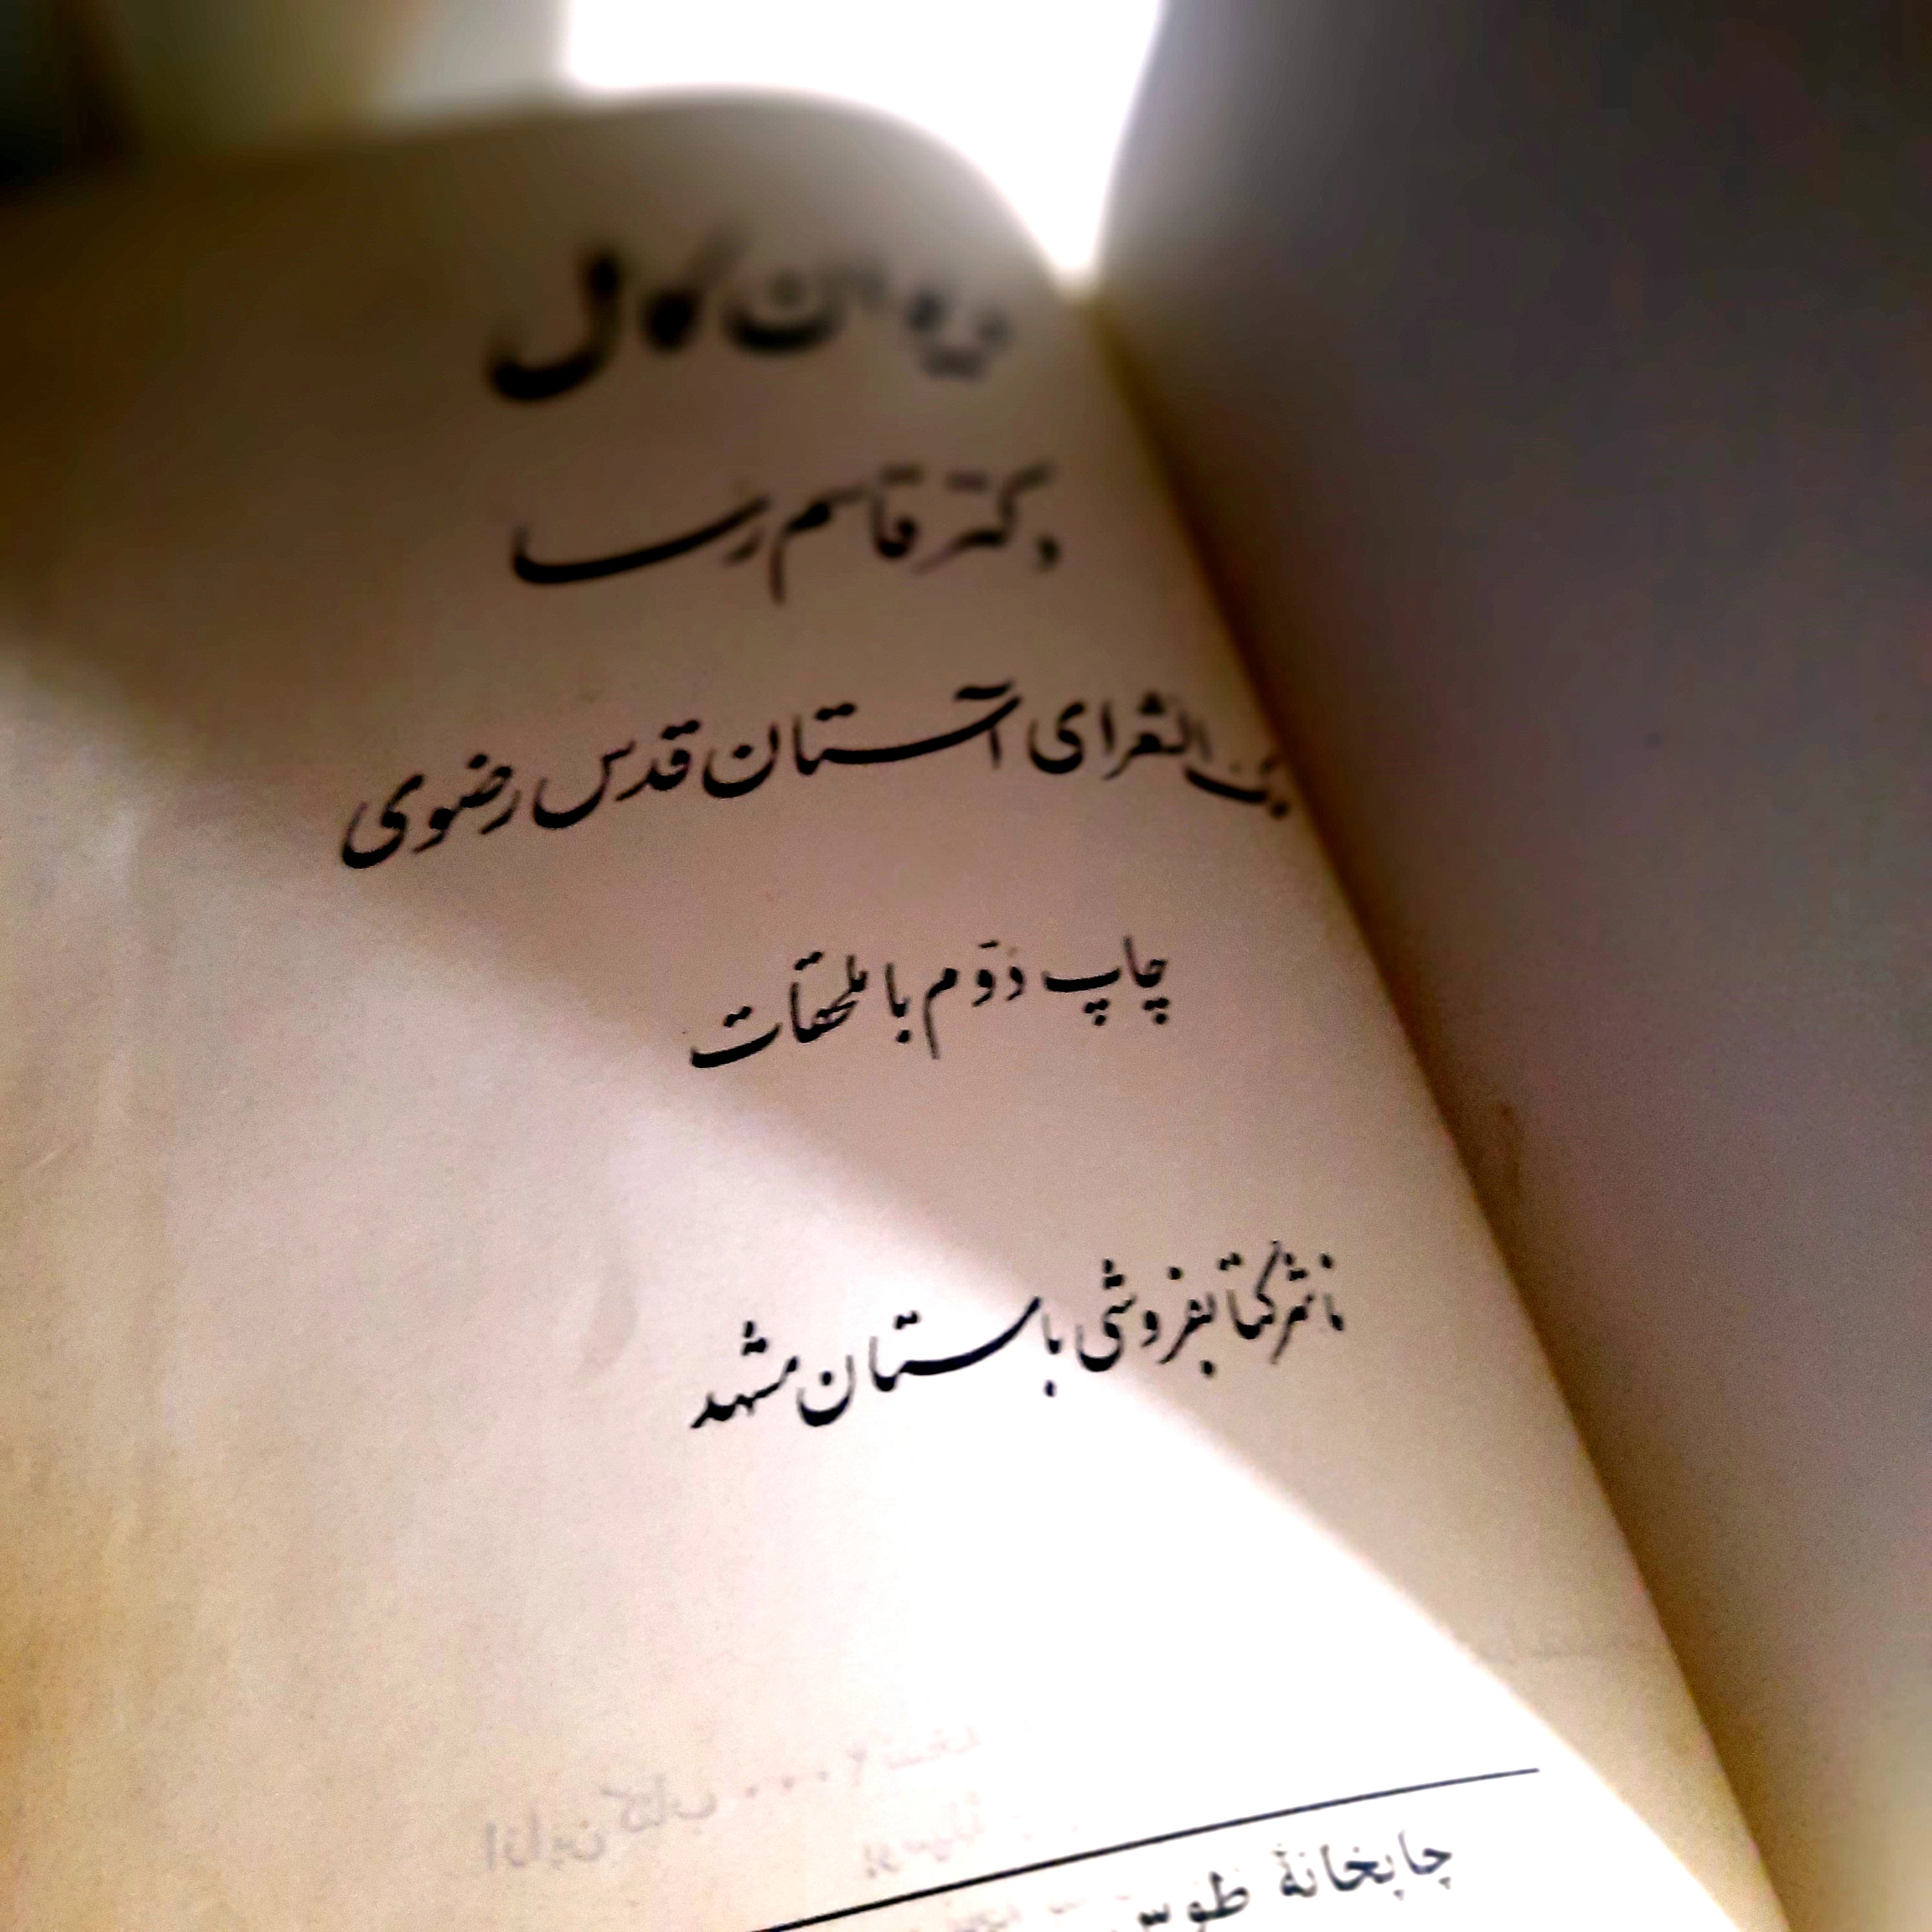 دیوان کامل
دکتر قاسم رسا
الشعرای آستان قدس رضوی
چاپ دوّم با ملحقات
ناشر کتابفروشی باستان مشهد
از این کتاب
چاپخانهٔ طوس